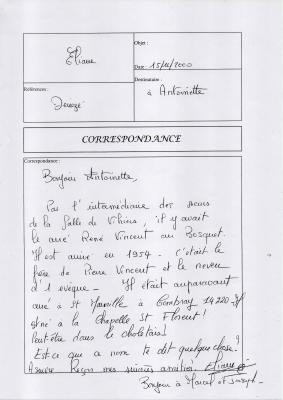 Eliane
Objet :
Date : 15/11/2000
Références :
Destinataire :
à Antoinette
CORRESPONDANCE
Correspondance :
Bonjour Antoinette,
Par l'intermédiaire des sœurs
de la Salle de Vihiers, il y avait
le curé René Vincent au Bosquet.
Il est arrivé en 1954 - c'était le
frère de Pierre Vincent et le neveu
d'1 évêque - Il était auparavant
curé à St à 14220 - Il
à la Chapelle St Florent !
Peut être dans le choletais !
Est-ce que ce nom te dit quelque chose ?
Reçois mes amitiés. Eliane
Bonjour à Marcel et Joseph.